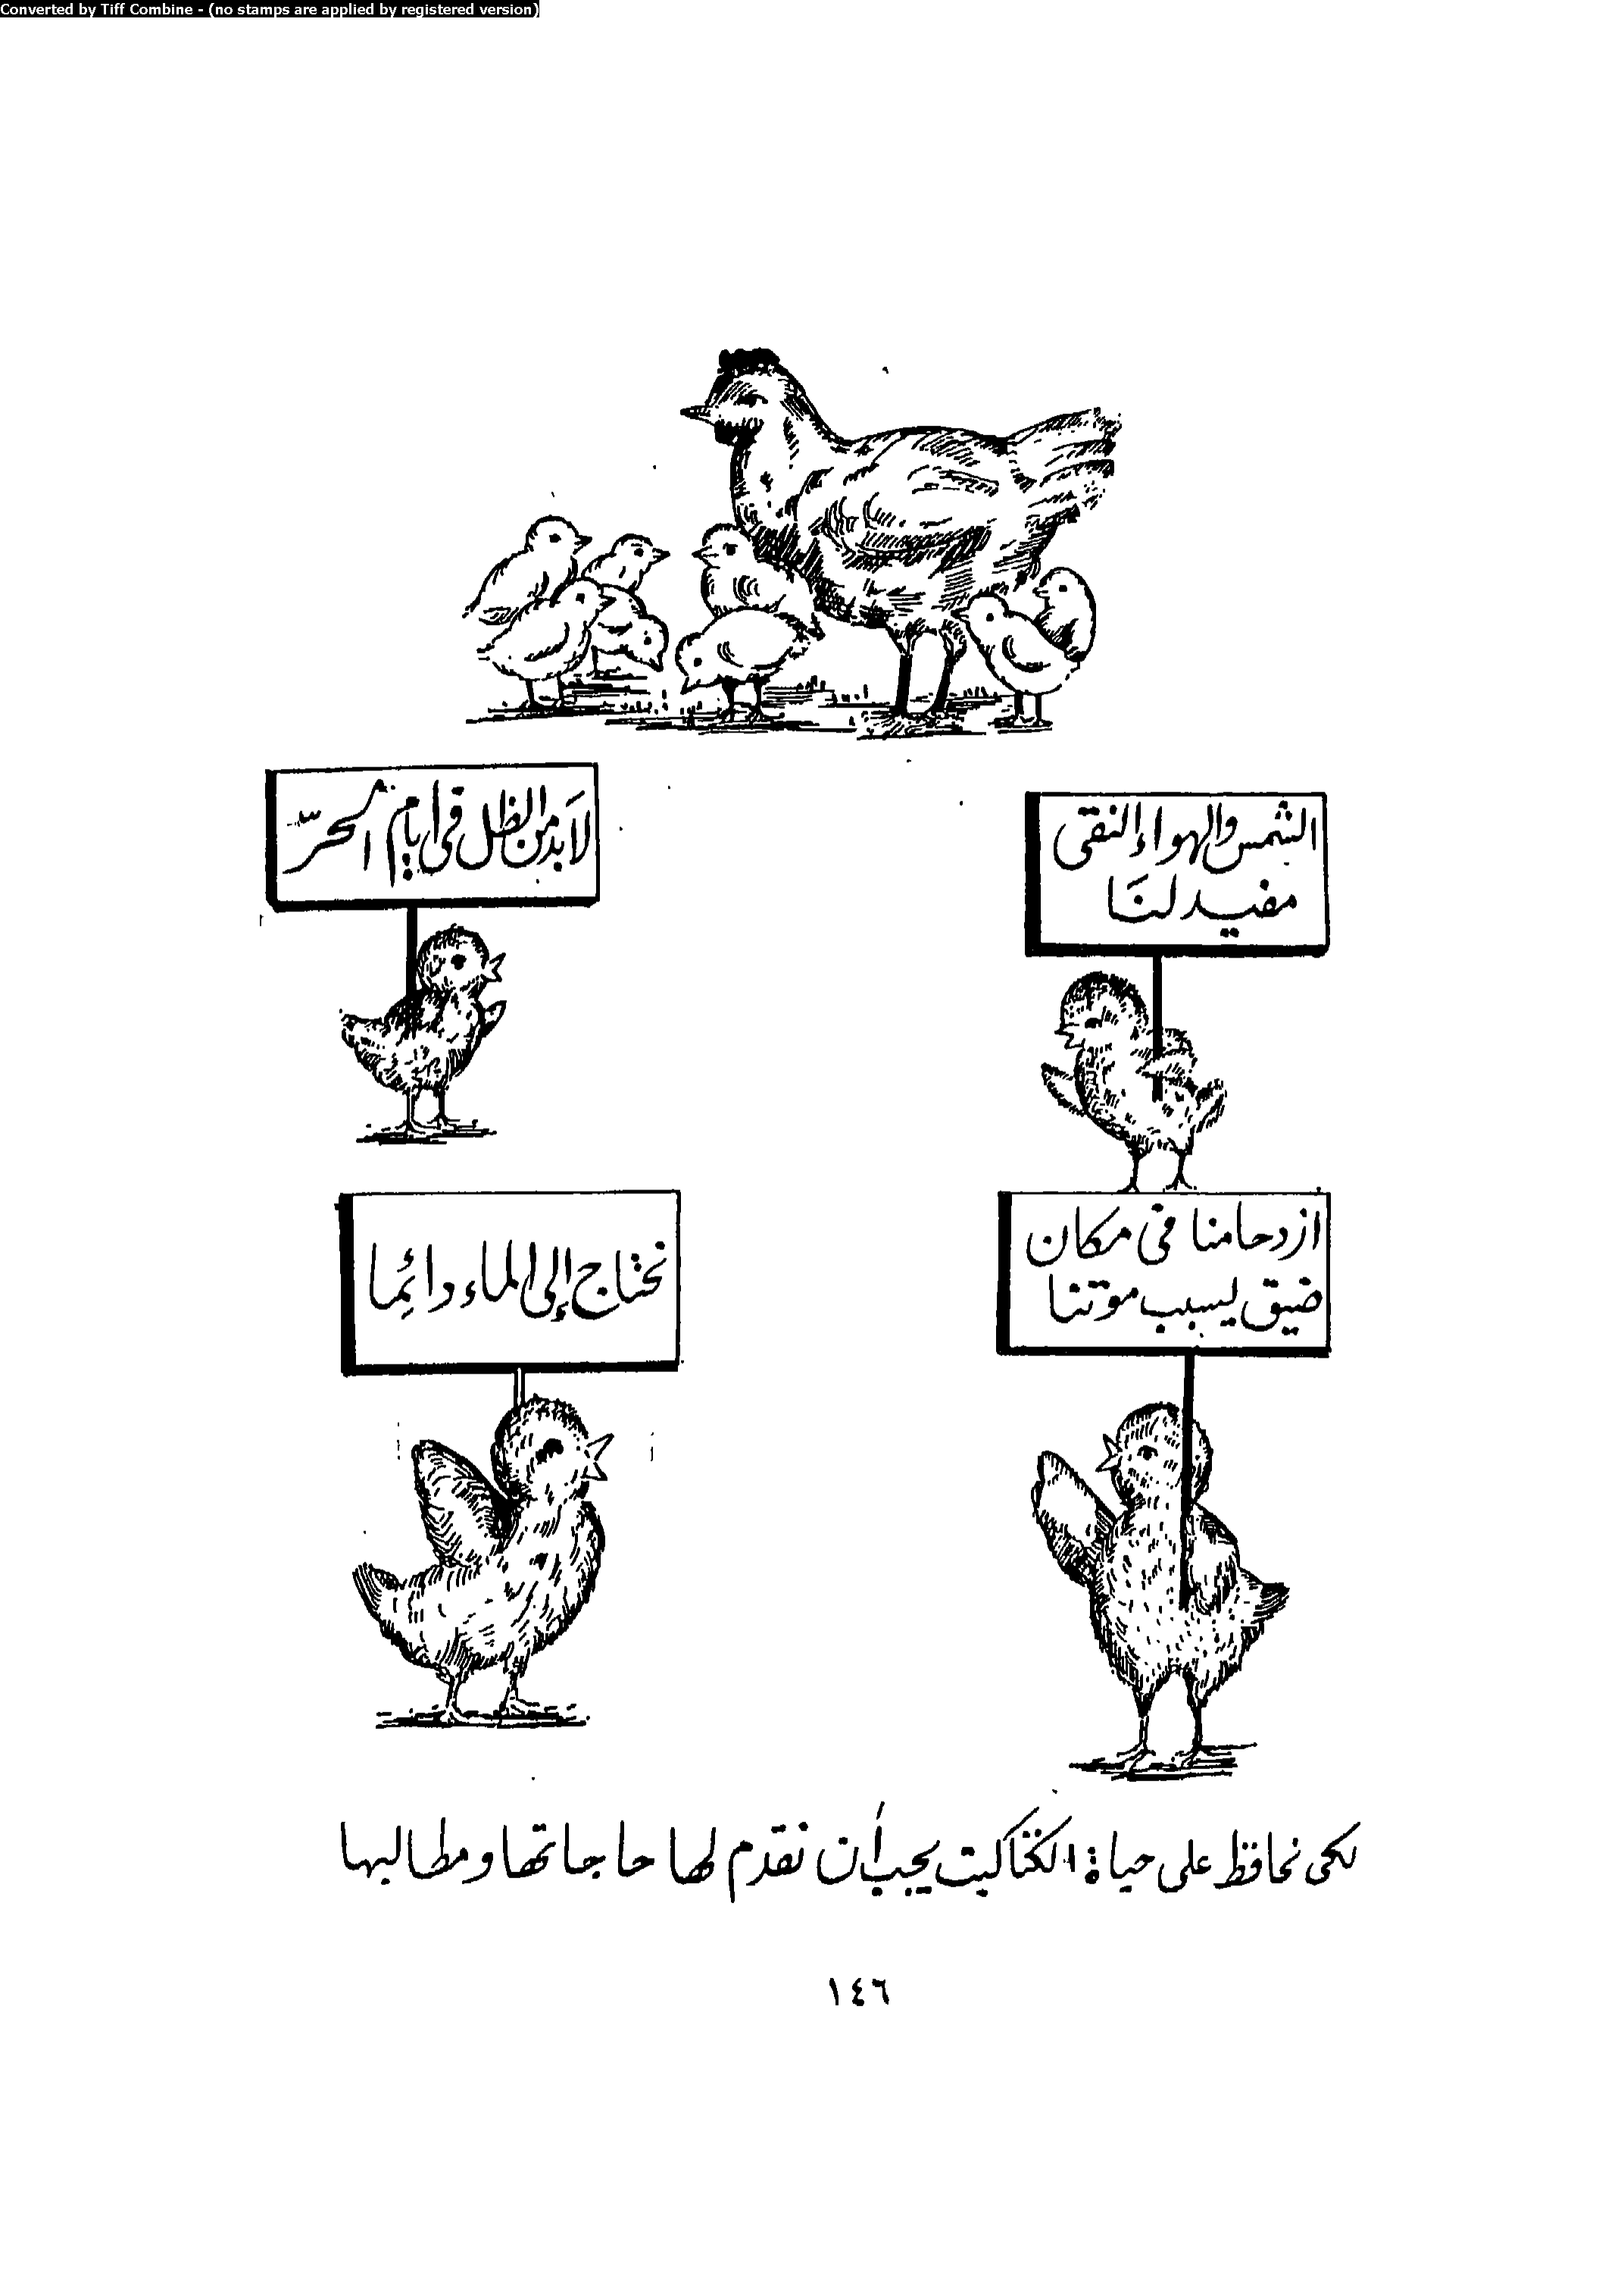 Converted by Tiff Combine - (no stamps are applied by registered version)
الشمس والهواء النقى
مفيد لنَا
لاَبد من الظل فى ايام الحرّ
ازدحامنا فى مكان
ضيق يسبب موتنا
نحتاج إلى الماء دائِما
لكى نحافظ على حياة الكتاكيت يجب أن نقدم لها حاجاتها ومطالبها
١٤٦